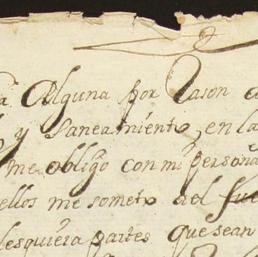 Alguna por Rason
y saneamiento, en la
me obligo con mi persona
ellos me someto del fue
lesquiera partes que sean